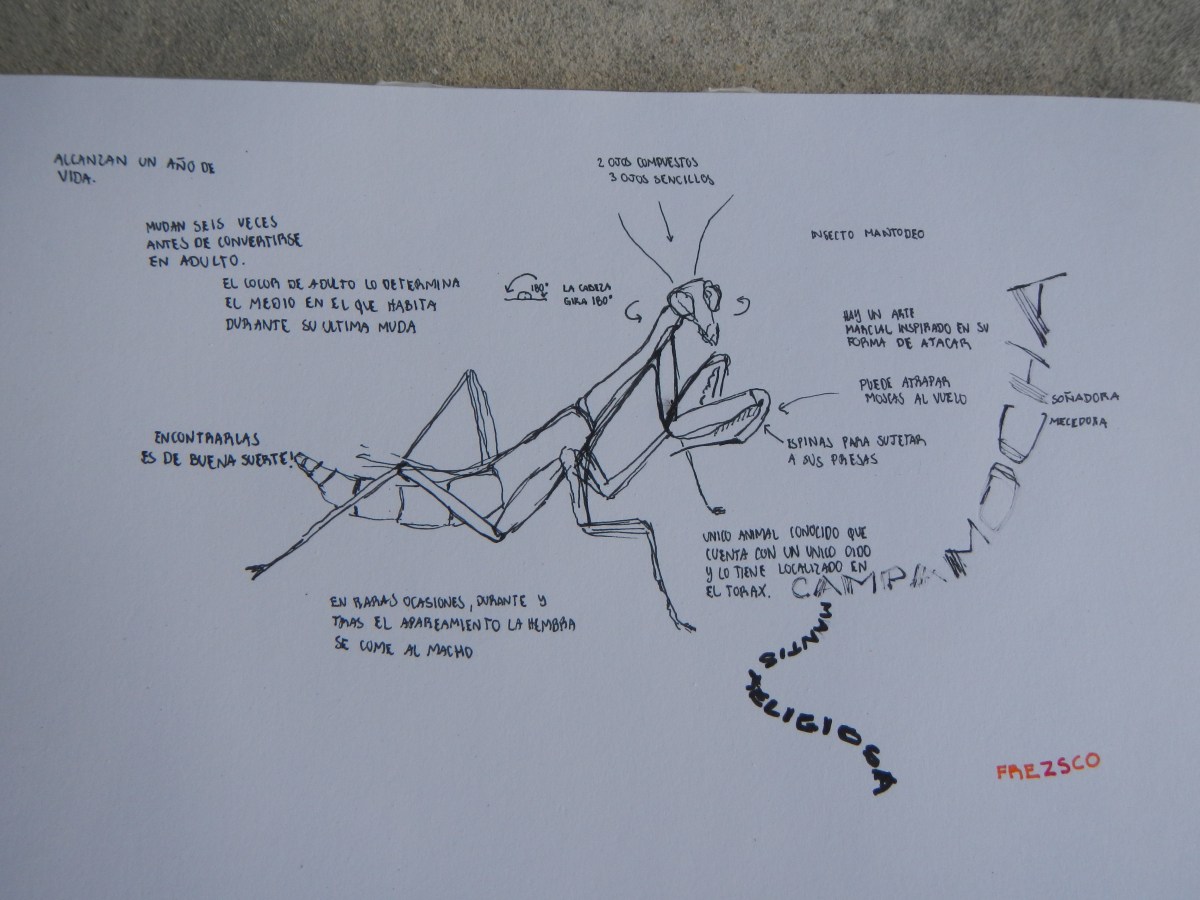 ALCANZAN UN AÑO DE
VIDA.
MUDAN SEIS VECES
ANTES DE CONVERTIRSE
EN ADULTO.
EL COLOR DE ADULTO LO DETERMINA
EL MEDIO EN EL QUE HABITA
DURANTE SU ULTIMA MUDA
2 OJOS COMPUESTOS
3 OJOS SENCILLOS
180°
LA CABEZA
GIRA 180°
INSECTO MANTODEO
HAY UN ARTE
MARCIAL INSPIRADO EN SU
FORMA DE ATACAR
PUEDE ATRAPAR
MOSCAS AL VUELO
ESPINAS PARA SUJETAR
A SUS PRESAS
SOÑADORA
MECEDORA
ENCONTRARLAS
ES DE BUENA SUERTE!
UNICO ANIMAL CONOCIDO QUE
CUENTA CON UN UNICO OIDO
Y LO TIENE LOCALIZADO EN
EL TORAX.
EN RARAS OCASIONES, DURANTE Y
TRAS EL APAREAMIENTO LA HEMBRA
SE COME AL MACHO
MANTIS
RELIGIOSA
FREZSCO